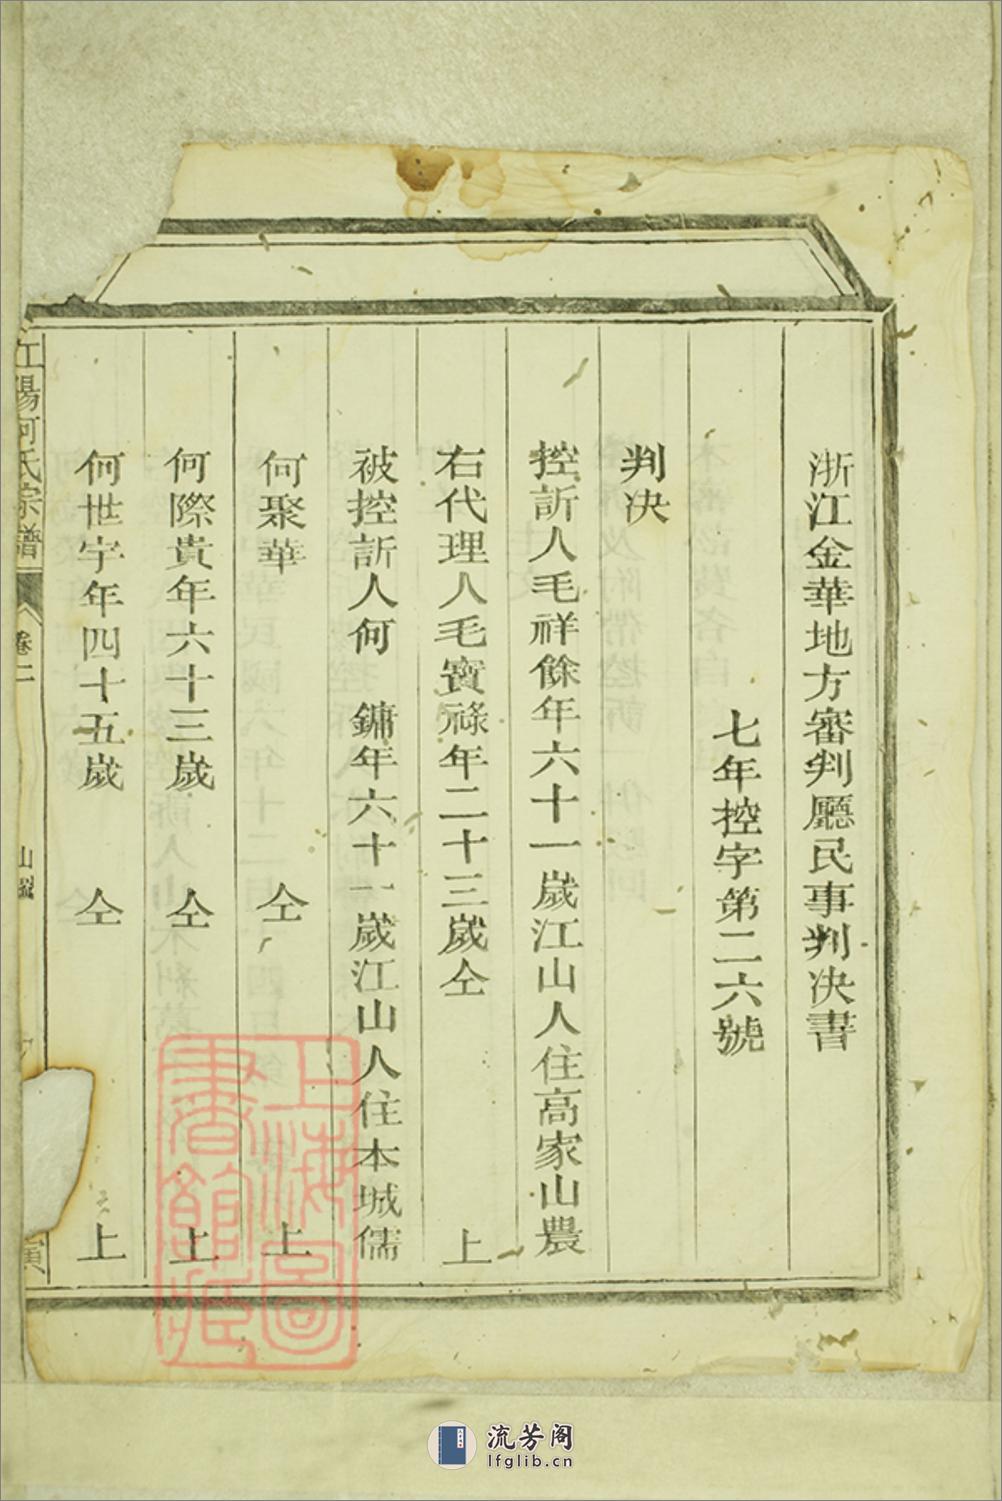 浙江金華地方審判廳民事判决書
七年控字第二六號
判决
控訴人毛祥餘年六十一歲江山人住高家山農
右代理人毛寶祿年二十三歲仝　上
被控訴人何　鏞年六十一歲江山人住本城儒
何聚華　仝　上
何際貴年六十三歲　仝　上
何世宇年四十五歲　仝　上
江陽何氏宗譜　卷二
上海圖書館藏
流芳阁
lfglib.cn